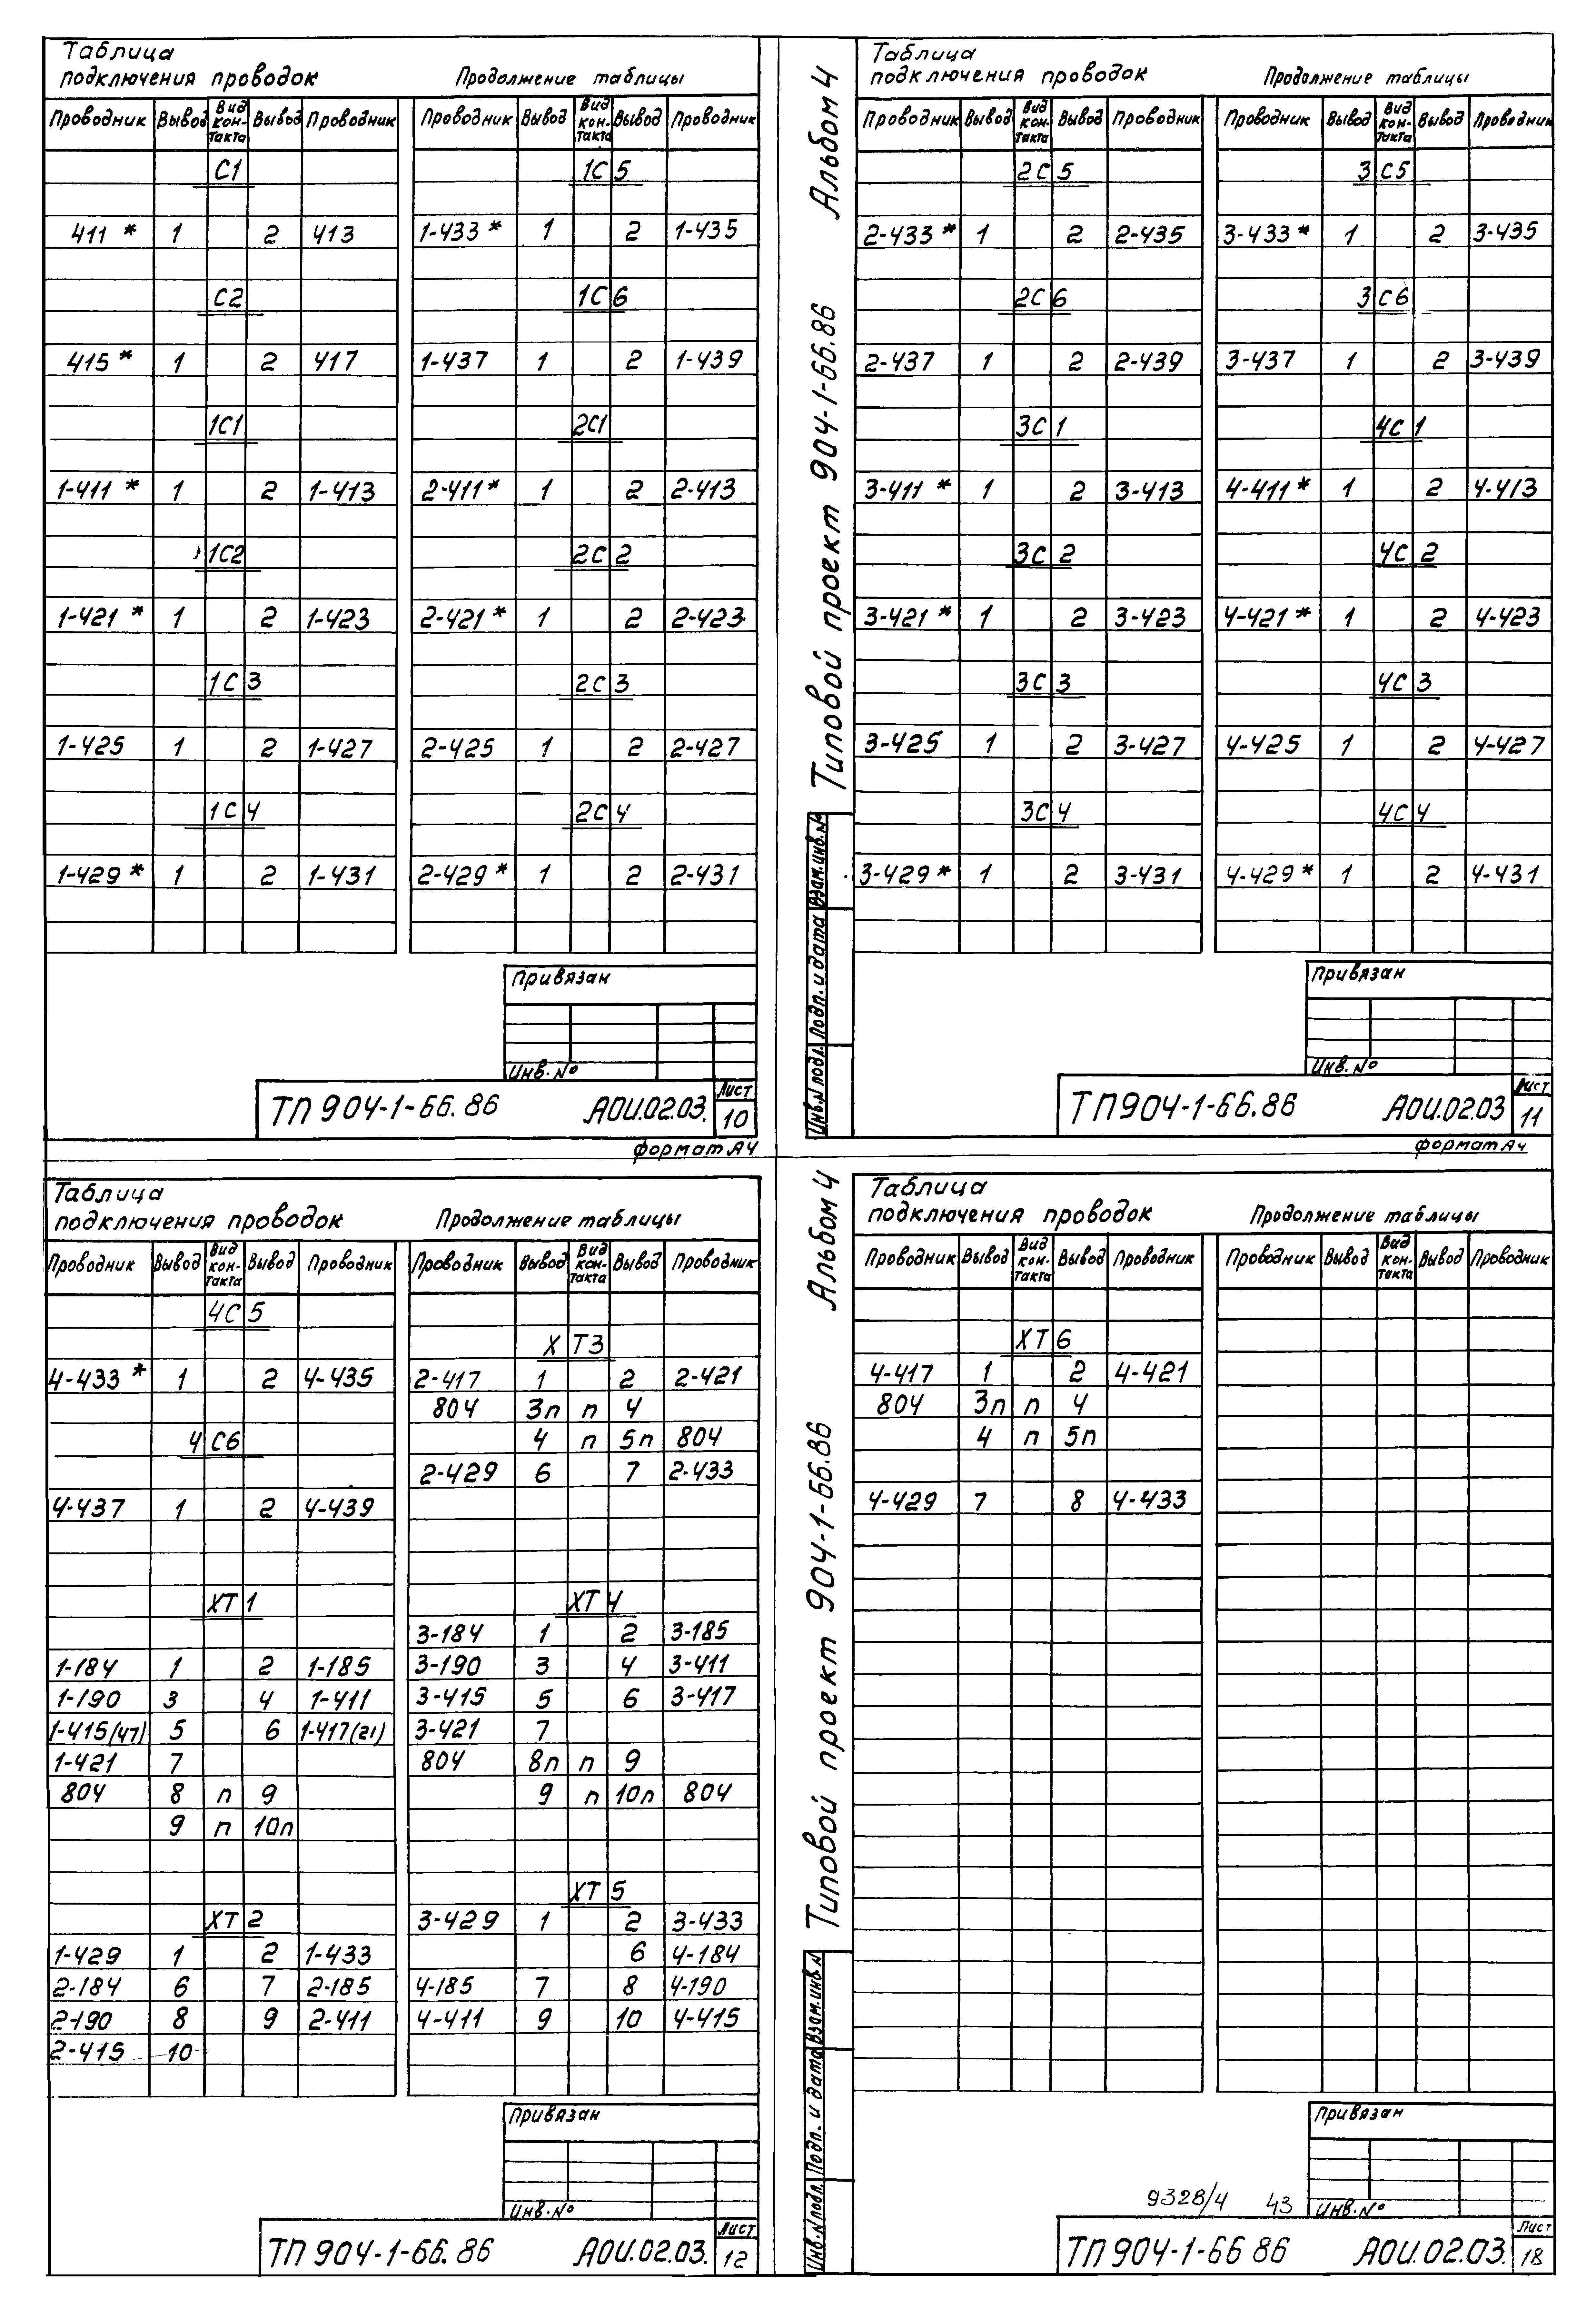 Таблица
подключения проводок
Продолжение таблицы
Проводник Вывод Вид кон-такта Вывод Проводник
С1
411 * 1 2 413
С2
415 * 1 2 417
1С1
1-411 * 1 2 1-413
1С2
1-421 * 1 2 1-423
1С3
1-425 1 2 1-427
1С4
1-429 * 1 2 1-431
Проводник Вывод Вид кон-такта Вывод Проводник
1С5
1-433 * 1 2 1-435
1С6
1-437 1 2 1-439
2С1
2-411 * 1 2 2-413
2С2
2-421 * 1 2 2-423
2С3
2-425 1 2 2-427
2С4
2-429 * 1 2 2-431
Привязан
Инв. №
ТП 904-1-66.86 АОИ.02.03.
Лист
10
формат А4
Альбом 4
Типовой проект 904-1-66.86
Взам.инв.№
Подп. и дата
Инв.№ подл.
Таблица
подключения проводок
Продолжение таблицы
Проводник Вывод Вид кон-такта Вывод Проводник
2С5
2-433 * 1 2 2-435
2С6
2-437 1 2 2-439
3С1
3-411 * 1 2 3-413
3С2
3-421 * 1 2 3-423
3С3
3-425 1 2 3-427
3С4
3-429 * 1 2 3-431
Проводник Вывод Вид кон-такта Вывод Проводник
3С5
3-433 * 1 2 3-435
3С6
3-437 1 2 3-439
4С1
4-411 * 1 2 4-413
4С2
4-421 * 1 2 4-423
4С3
4-425 1 2 4-427
4С4
4-429 * 1 2 4-431
Привязан
Инв. №
ТП904-1-66.86 АОИ.02.03
Лист
11
формат А4
Таблица
подключения проводок
Продолжение таблицы
Проводник Вывод Вид кон-такта Вывод Проводник
4С5
4-433 * 1 2 4-435
4С6
4-437 1 2 4-439
ХТ1
1-184 1 2 1-185
1-190 3 4 1-411
1-415(47) 5 6 1-417(21)
1-421 7
804 8 п 9
9 п 10п
ХТ2
1-429 1 2 1-433
2-184 6 7 2-185
2-190 8 9 2-411
2-415 10
Проводник Вывод Вид кон-такта Вывод Проводник
ХТ3
2-417 1 2 2-421
804 3п п 4
4 п 5п 804
2-429 6 7 2-433
ХТ4
3-184 1 2 3-185
3-190 3 4 3-411
3-415 5 6 3-417
3-421 7
804 8п п 9
9 п 10п 804
ХТ5
3-429 1 2 3-433
6 4-184
4-185 7 8 4-190
4-411 9 10 4-415
Привязан
Инв. №
ТП 904-1-66.86 АОИ.02.03.
Лист
12
Альбом 4
Типовой проект 904-1-66.86
Взам.инв.№
Подп. и дата
Инв.№ подл.
Таблица
подключения проводок
Продолжение таблицы
Проводник Вывод Вид кон-такта Вывод Проводник
ХТ6
4-417 1 2 4-421
804 3п п 4
4 п 5п
4-429 7 8 4-433
Проводник Вывод Вид кон-такта Вывод Проводник
Привязан
9328/4 43
Инв. №
ТП 904-1-66 86 АОИ.02.03.
Лист
18